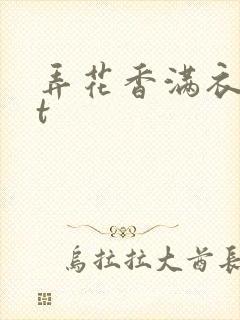 弄花香满衣
t
烏拉拉大酋長